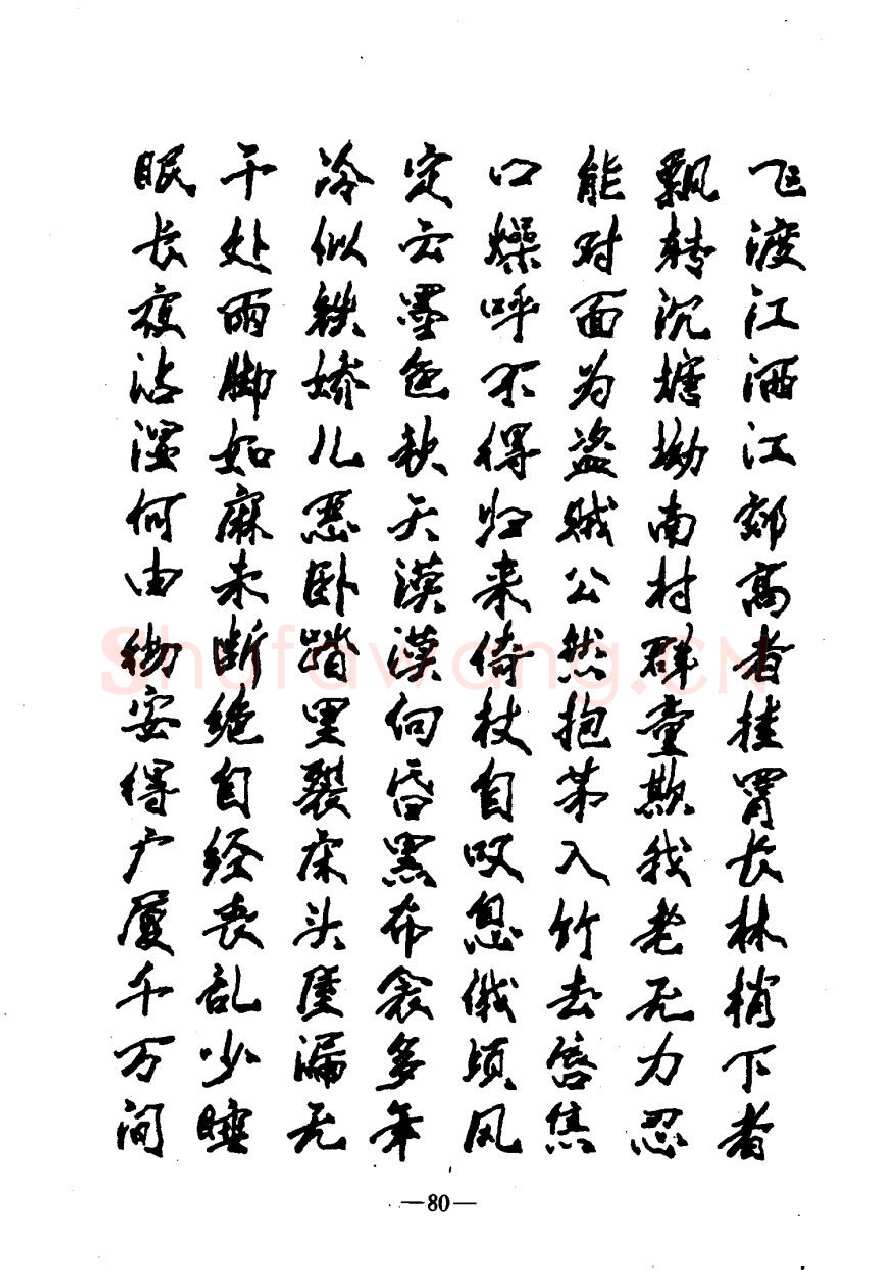 飞渡江洒江郊高者挂罥长林梢下者
飘转沉塘坳南村群童欺我老无力忍
能对面为盗贼公然抱茅入竹去唇焦
口燥呼不得归来倚杖自叹息俄顷风
定云墨色秋天漠漠向昏黑布衾多年
冷似铁娇儿恶卧踏里裂床头屋漏无
干处雨脚如麻未断绝自经丧乱少睡
眠长夜沾湿何由彻安得广厦千万间
—80—
Shufawang.CN